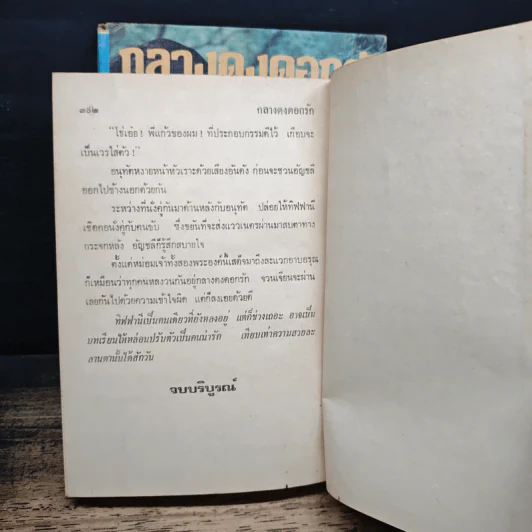 กลางดงดอกรัก
๓๕๒ กลางดงดอกรัก
"โช่เอ๋อ! พี่แก้วของผม! ที่ประกอบกรรมดีไว้ เกือบจะ
เป็นเวรใส่ตัว!"
อนุทัตหงายหน้าหัวเราะด้วยเสียงอันดัง ก่อนจะชวนอัญชลี
ออกไปข้างนอกด้วยกัน
ระหว่างที่นั่งคู่กันมาด้านหลังกับอนุทัต ปล่อยให้ทิฟฟานี
เชิดคอนั่งคู่กับคนขับ ซึ่งขยันที่จะส่งแววเนตรผ่านมาสบตาทาง
กระจกหลัง อัญชลีก็รู้สึกสบายใจ
ตั้งแต่หม่อมเจ้าทั้งสองพระองค์นี้เสด็จมาถึงละแวกอาบอรุณ
ก็เหมือนว่าทุกคนหลงวนกันอยู่กลางดงดอกรัก จวนเจียนจะผ่าน
เลยกันไปด้วยความเข้าใจผิด แต่ก็ลงเอยด้วยดี
ทิฟฟานีเป็นคนเดียวที่ยังหลงอยู่ แต่ก็ช่างเถอะ อาจเป็น
บทเรียนให้หล่อนปรับตัวเป็นคนน่ารัก เทียบเท่าความสวยละ
ลานตานั้นได้สักวัน
จบบริบูรณ์